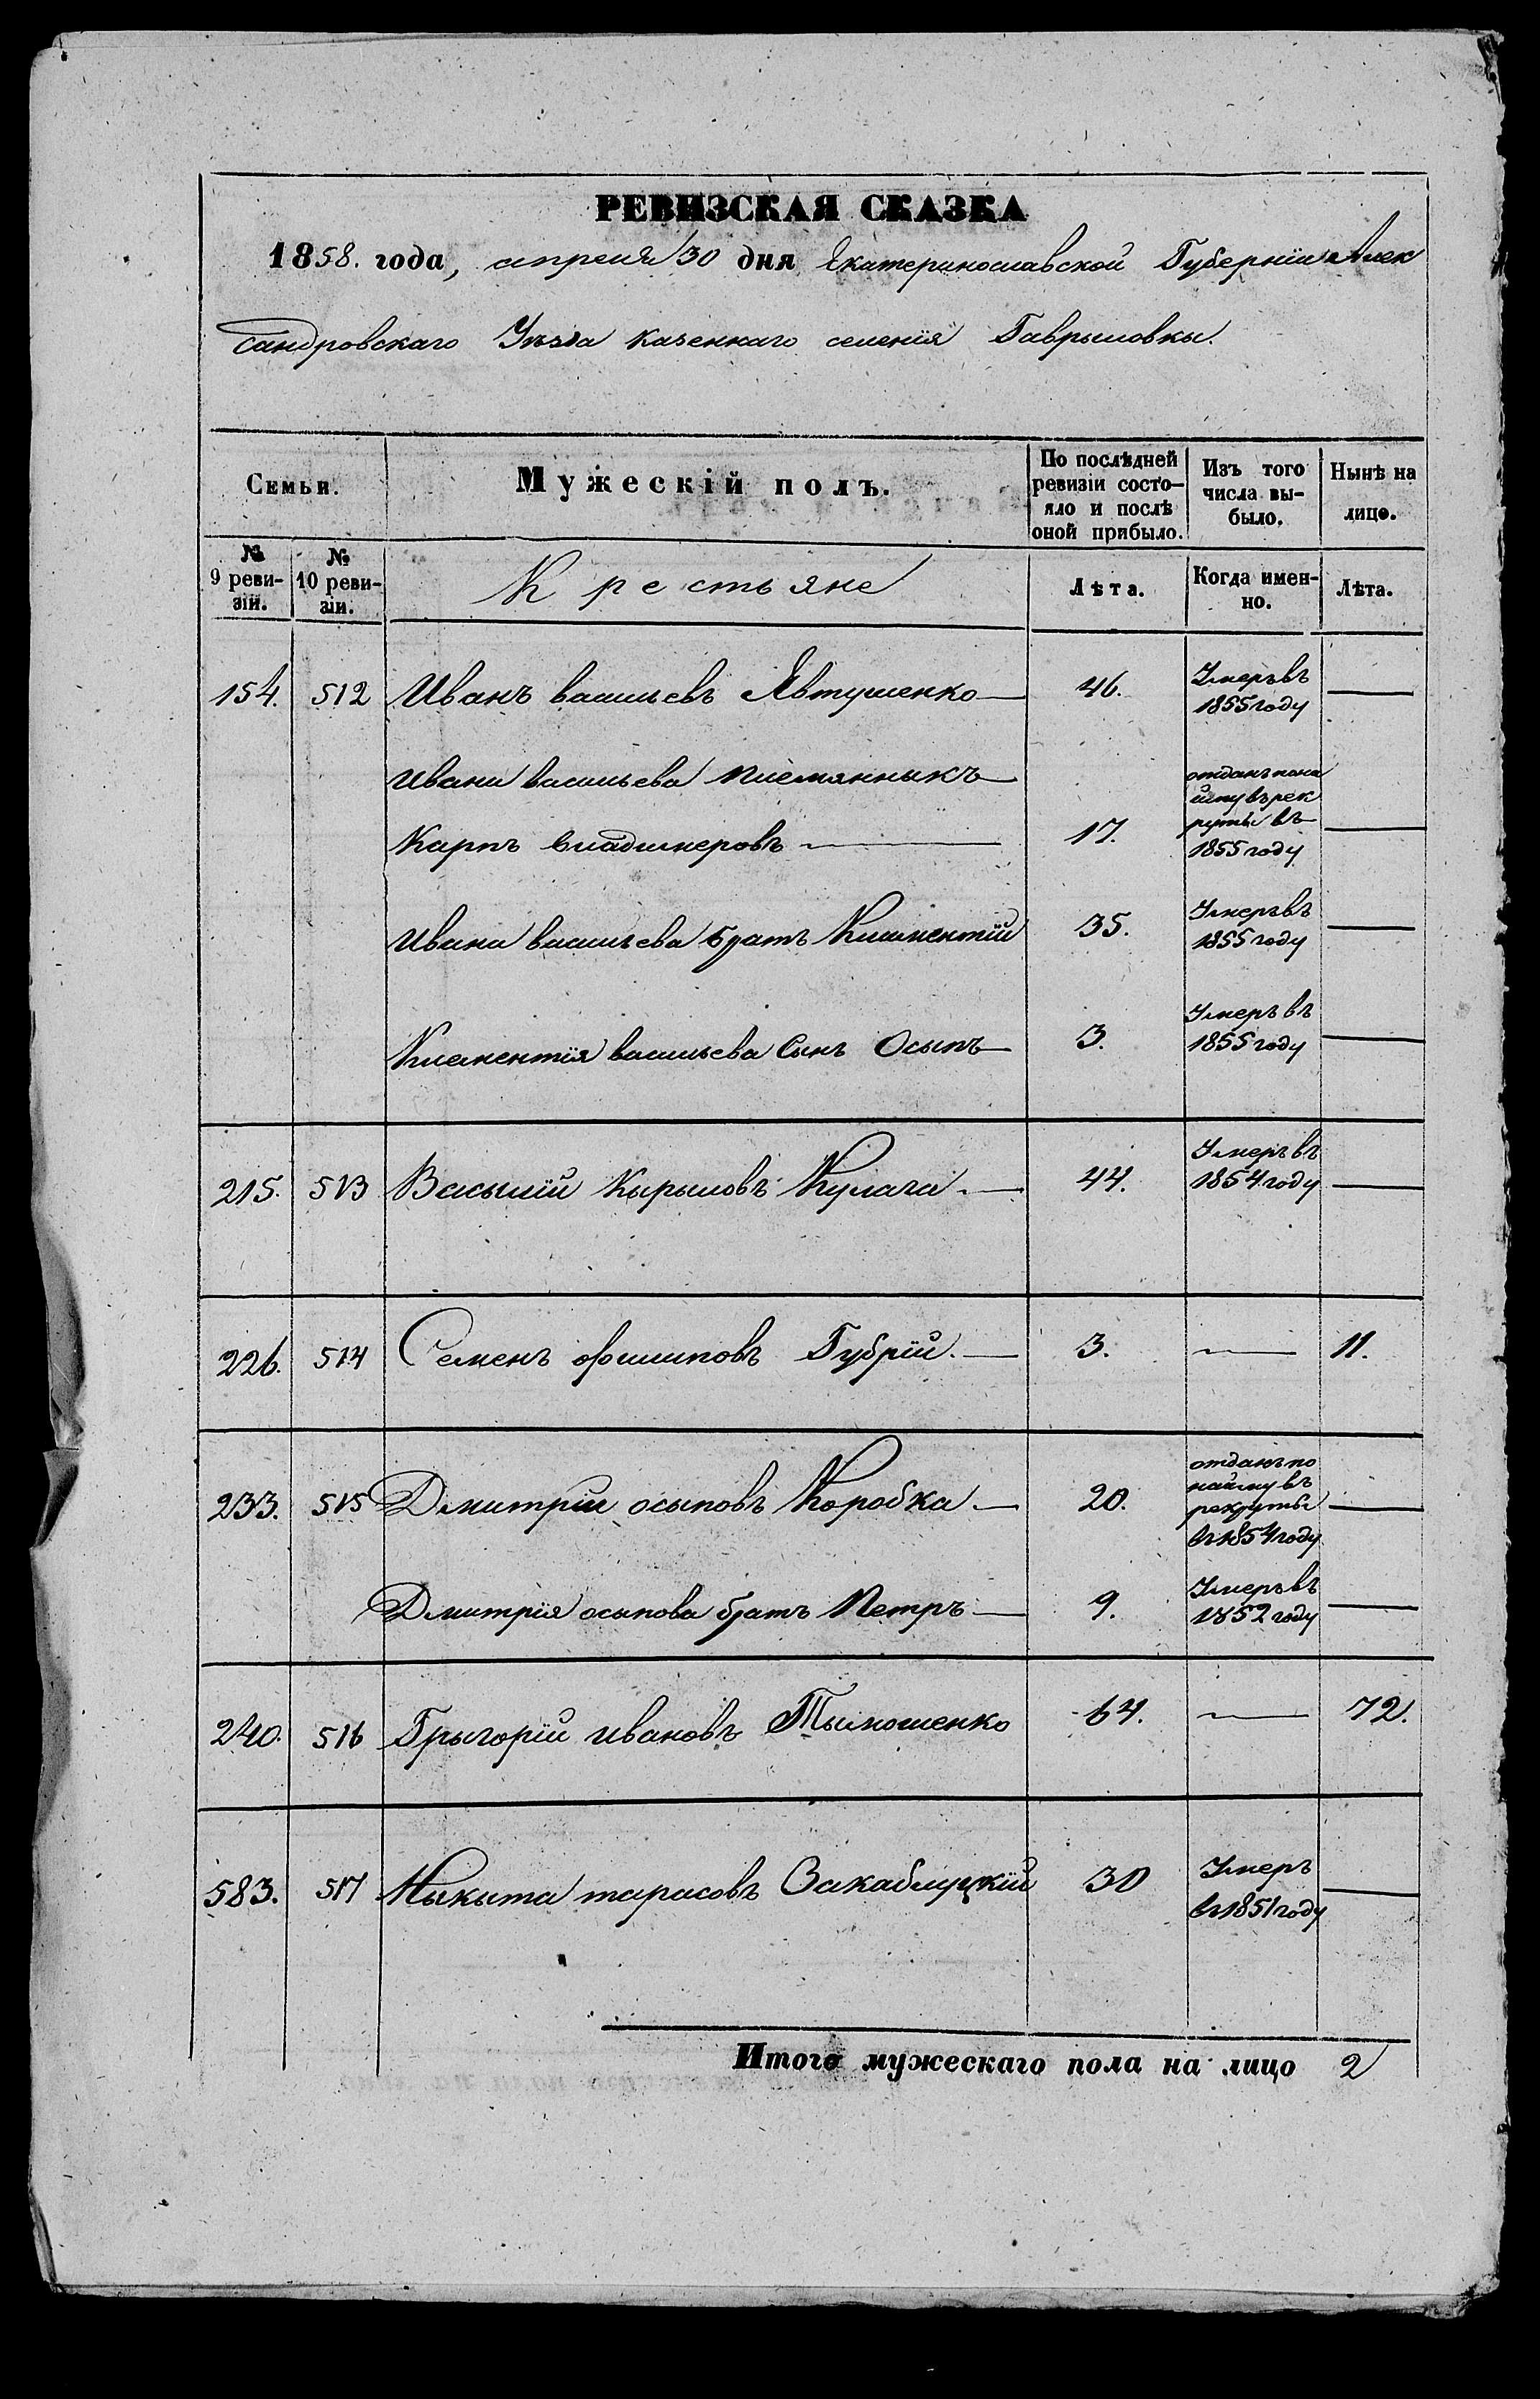 РЕВИЗСКАЯ СКАЗКА
1858. года, апреля 30 дня Екатеринославской Губерніи Алек
сандровскаго Уѣзда казеннаго селенія Гаврыловкы.
Семьи. Мужескій полъ. По послѣдней ревизіи состо- Изъ того Нынѣ на
яло и послѣ оной прибыло. числа вы- было. лицо.
№ 9 реви- зіи. № 10 реви- зіи. Крестьяне Лѣта. Когда имен- но. Лѣта.
154. 512 Иванъ васильевъ Явтушенко — 46. Умеръ въ 1855 году —
Ивана васильева племянныкъ —
Карпъ владимеровъ — 17. отданъ пона йму въ рек руты въ 1855 году —
Ивана васильева братъ Климентій 35. Умеръ въ 1855 году —
Климентія васильева Сынъ Осыпъ — 3. Умеръ въ 1855 году —
215. 513 Васылій Кырыловъ Кулага — 44. Умеръ въ 1854 году —
226. 514 Семенъ филиповъ Губрій. — 3. — 11.
233. 515 Дмитрій осыповъ Коробка — 20. отданъ по найму въ рекруты въ 1854 году —
Дмитрія осыпова братъ Петръ — 9. Умеръ въ 1852 году —
240. 516 Грыгорій ивановъ Тымошенко 64. — 72.
583. 517 Ныкыта тарасовъ Закаблуцкій 30 Умеръ въ 1851 году —
Итого мужескаго пола на лицо 2